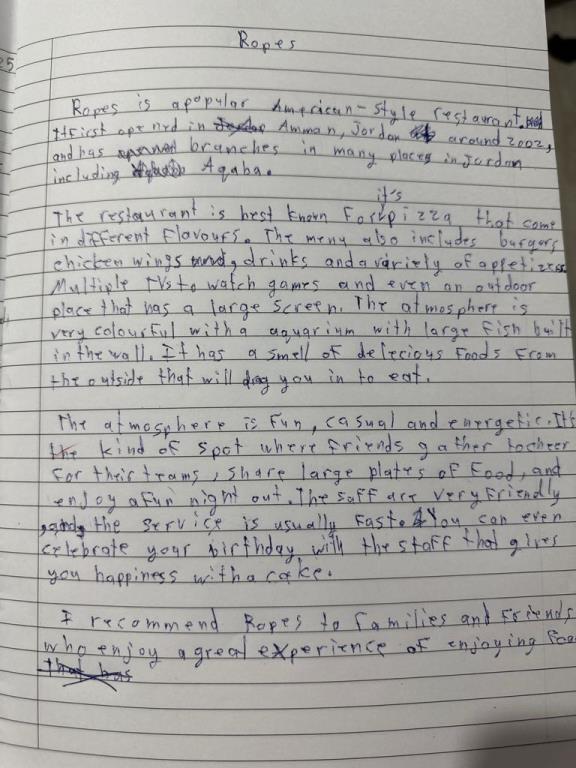 25
Ropes
Ropes is a popular American-style restaurant.
It first opened in Amman, Jordan around 2002,
and has branches in many places in Jordan
including Aqaba.
it's
The restaurant is best known For pizza that come
in different Flavours. The meny also includes burgers
chicken wings, drinks and a variely of appetizers
Multiple TVs to watch games and even an outdoor
place that has a large screen. The atmosphere is
very colourful with a aquarium with large fish built
in the wall. It has a smell of delecious Foods From
the outside that will drag you in to eat.
The atmosphere is Fun, casual and energetic. It's
the kind of spot where Friends gather to cheer
For their teams, share large plates of Food, and
enjoy a Fun night out. The saff are very Friendly
and the service is usually Fast. You can even
celebrate your birthday with the staff that gives
you happiness with a cake.
I recommend Ropes to Families and Friends
who enjoy a great experience of enjoying Foo
that has